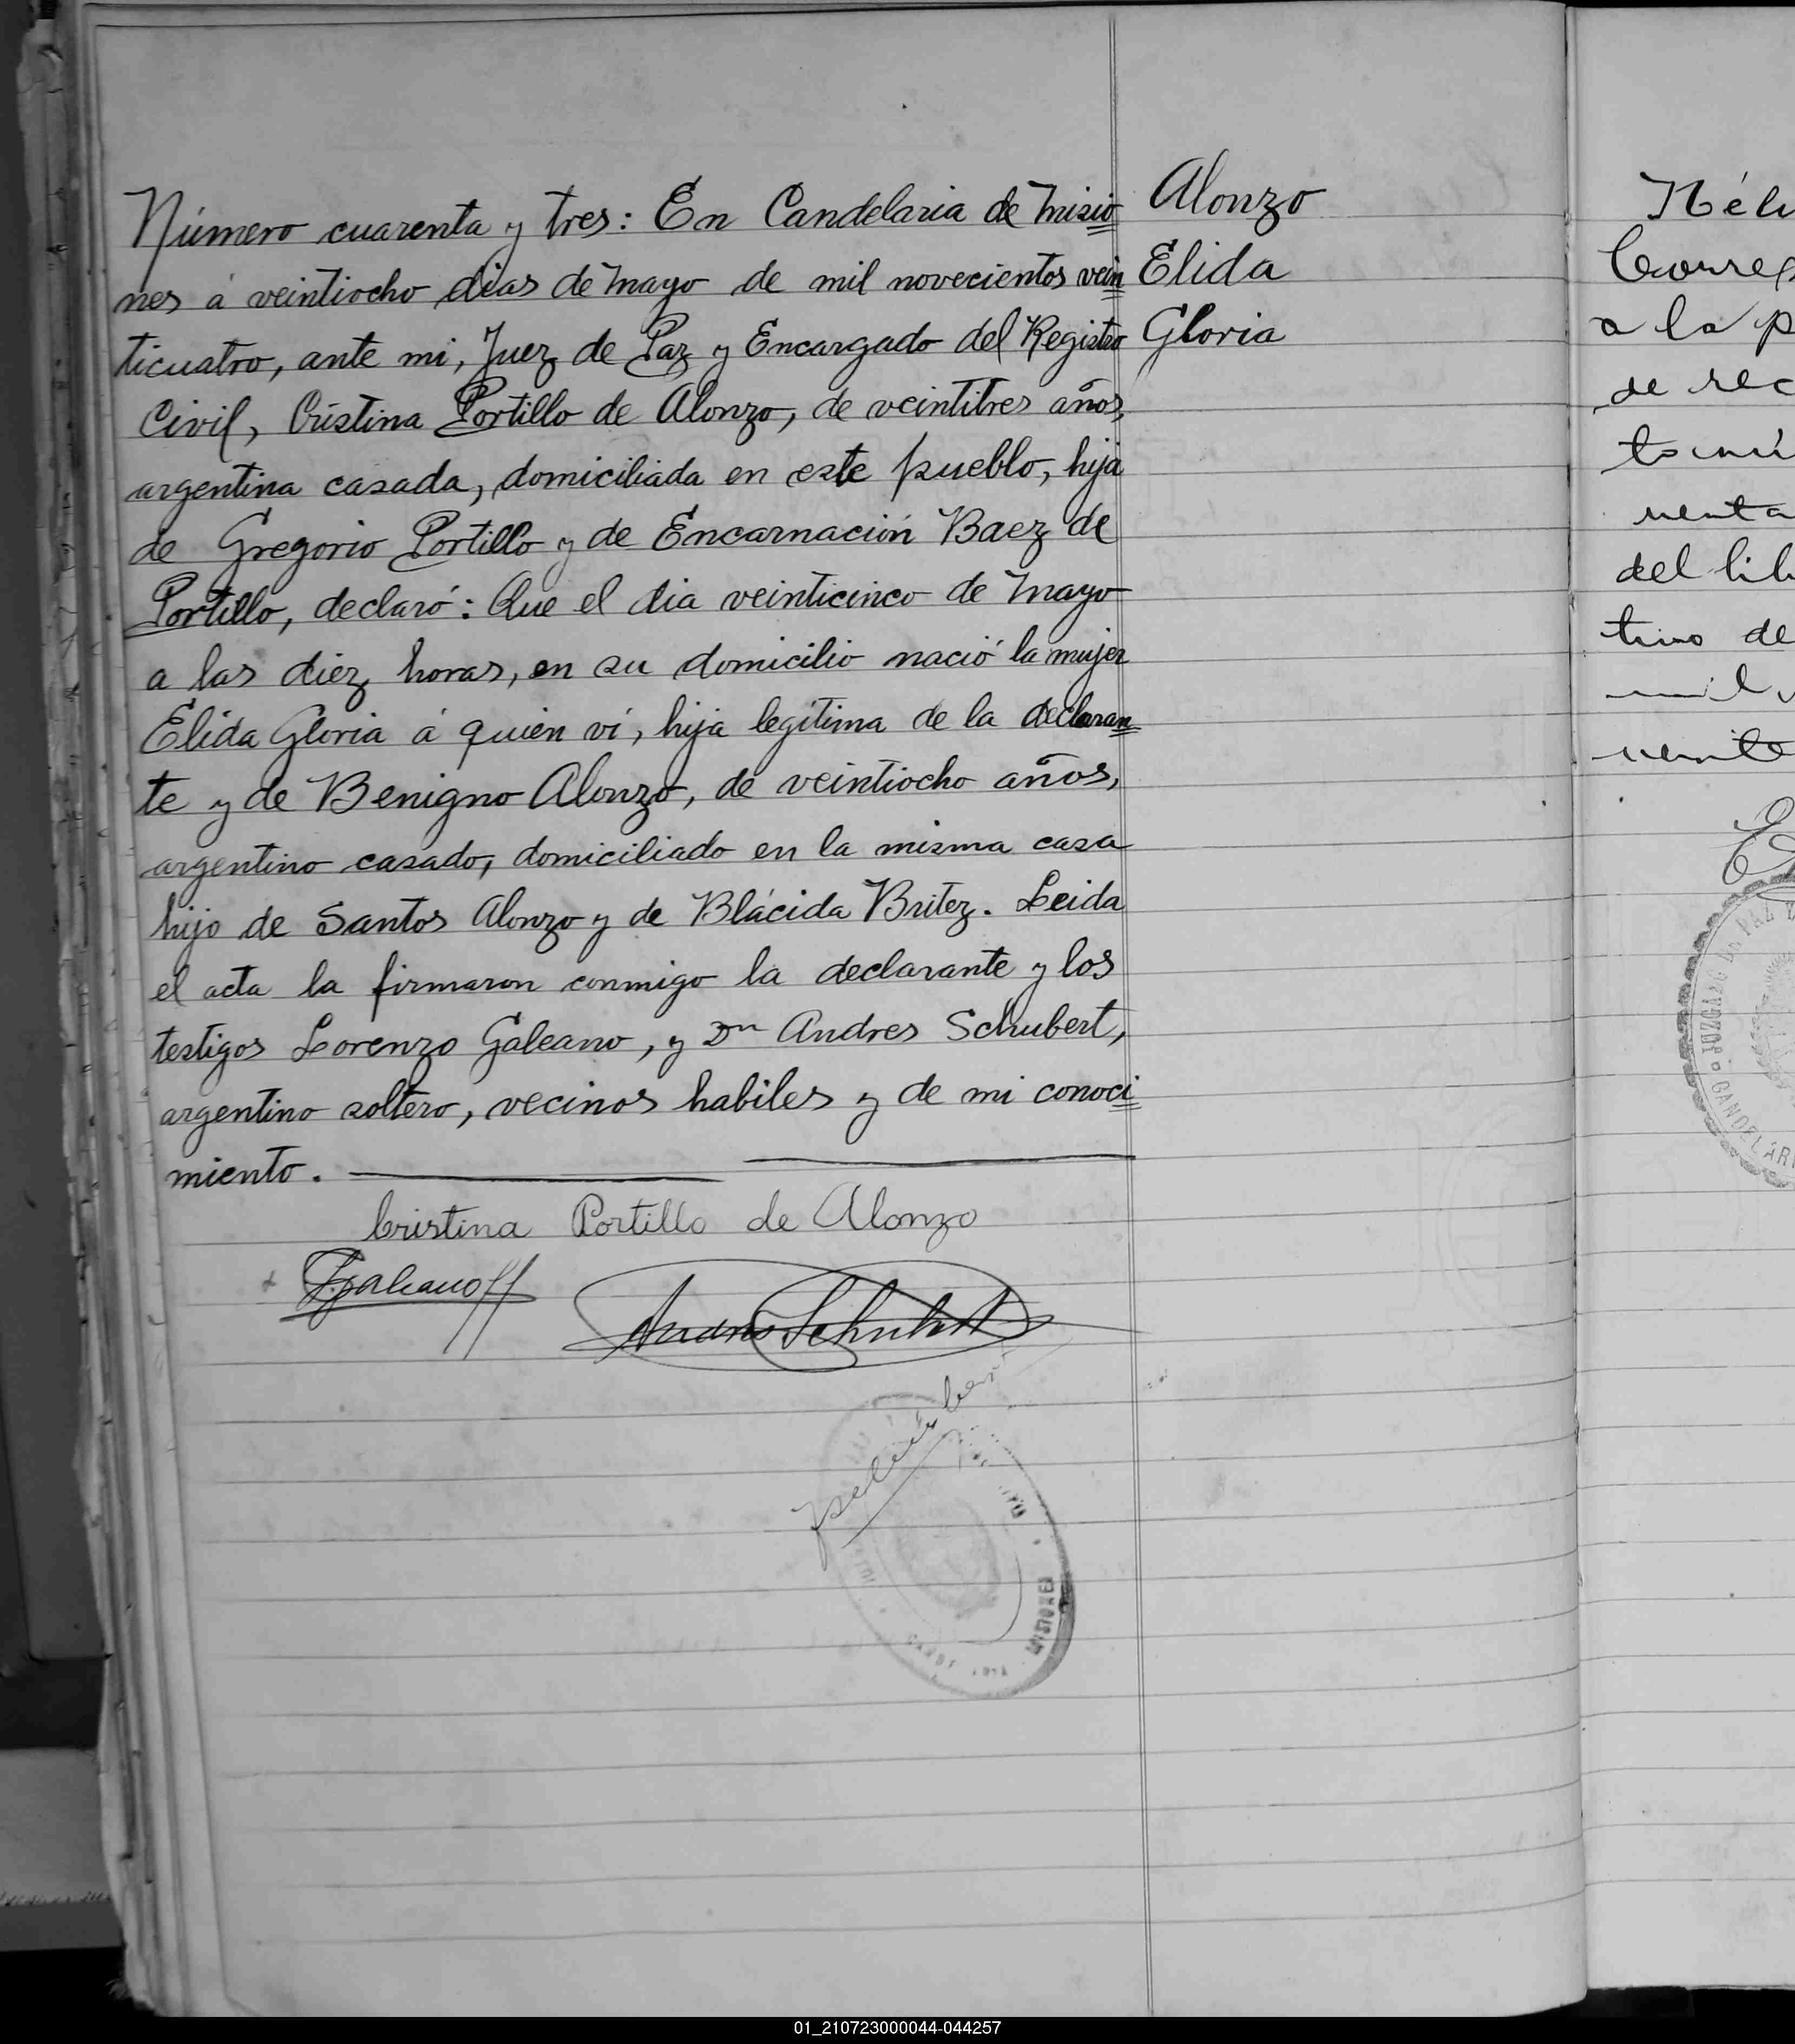 Número cuarenta y tres: En Candelaria de Misio
nes á veintiocho dias de Mayo de mil novecientos vein
ticuatro, ante mi, Juez de Paz y Encargado del Registro
Civil, Cristina Portillo de Alonzo, de veintitres años,
argentina casada, domiciliada en este pueblo, hija
de Gregorio Portillo y de Encarnación Baez de
Portillo, declaró: Que el dia veinticinco de Mayo
a las diez horas, en su domicilio nació la mujer
Elida Gloria á quien vi, hija legitima de la declaran
te y de Benigno Alonzo, de veintiocho años,
argentino casado, domiciliado en la misma casa
hijo de Santos Alonzo y de Blácida Britez. Leida
el acta la firmaron conmigo la declarante y los
testigos Lorenzo Galeano, y Dn Andres Schubert,
argentino soltero, vecinos habiles y de mi conoci
miento.
Cristina Portillo de Alonzo
Galeano
Andres Schubert
MISIONES
Alonzo
Elida
Gloria
a la p
de rec
del lib
de
JUZGADO DE PAZ
CANDELARI
01_210723000044-044257